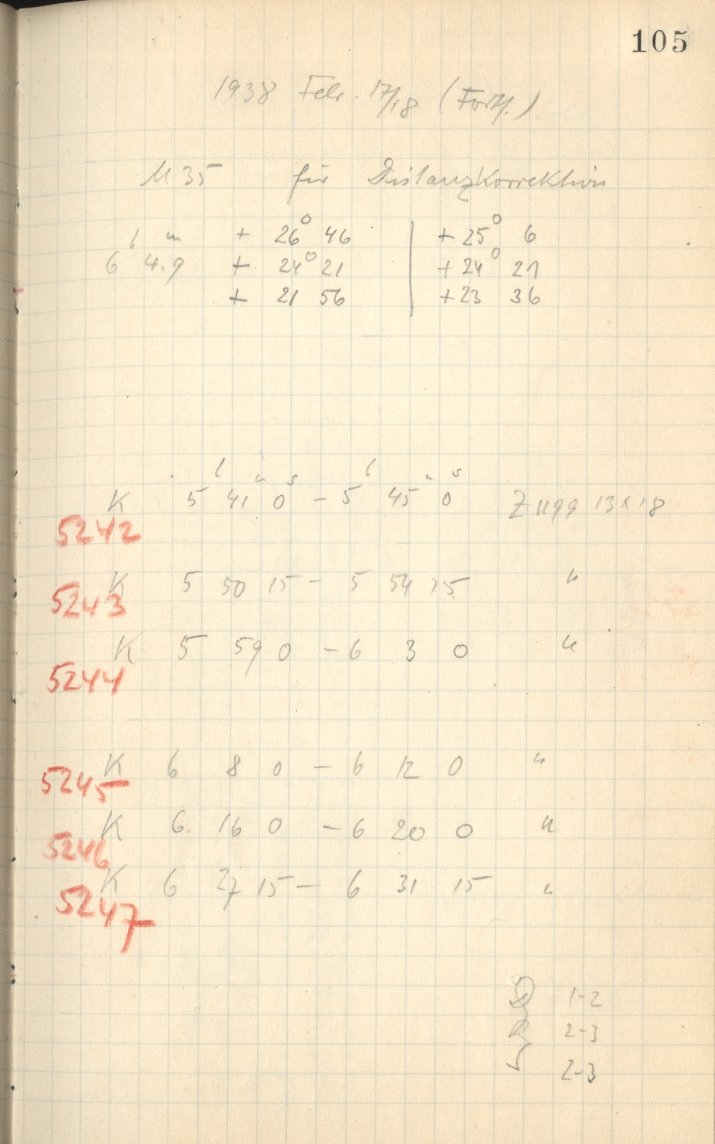 105
1938 Febr. 17/18 (Forts.)
M 35 für Distanzkorrektion
h m + 26° 46 | + 25° 6
6 4.9 + 24° 21 | + 24° 21
+ 21 56 | + 23 36
h m s h m s
K 5 41 0 – 5 45 0 Z 1199 13x18
5242
K 5 50 15 – 5 54 15 "
5243
K 5 59 0 – 6 3 0 "
5244
K 6 8 0 – 6 12 0 "
5245
K 6 16 0 – 6 20 0 "
5246
K 6 27 15 – 6 31 15 "
5247
D 1-2
R 2-3
S 2-3